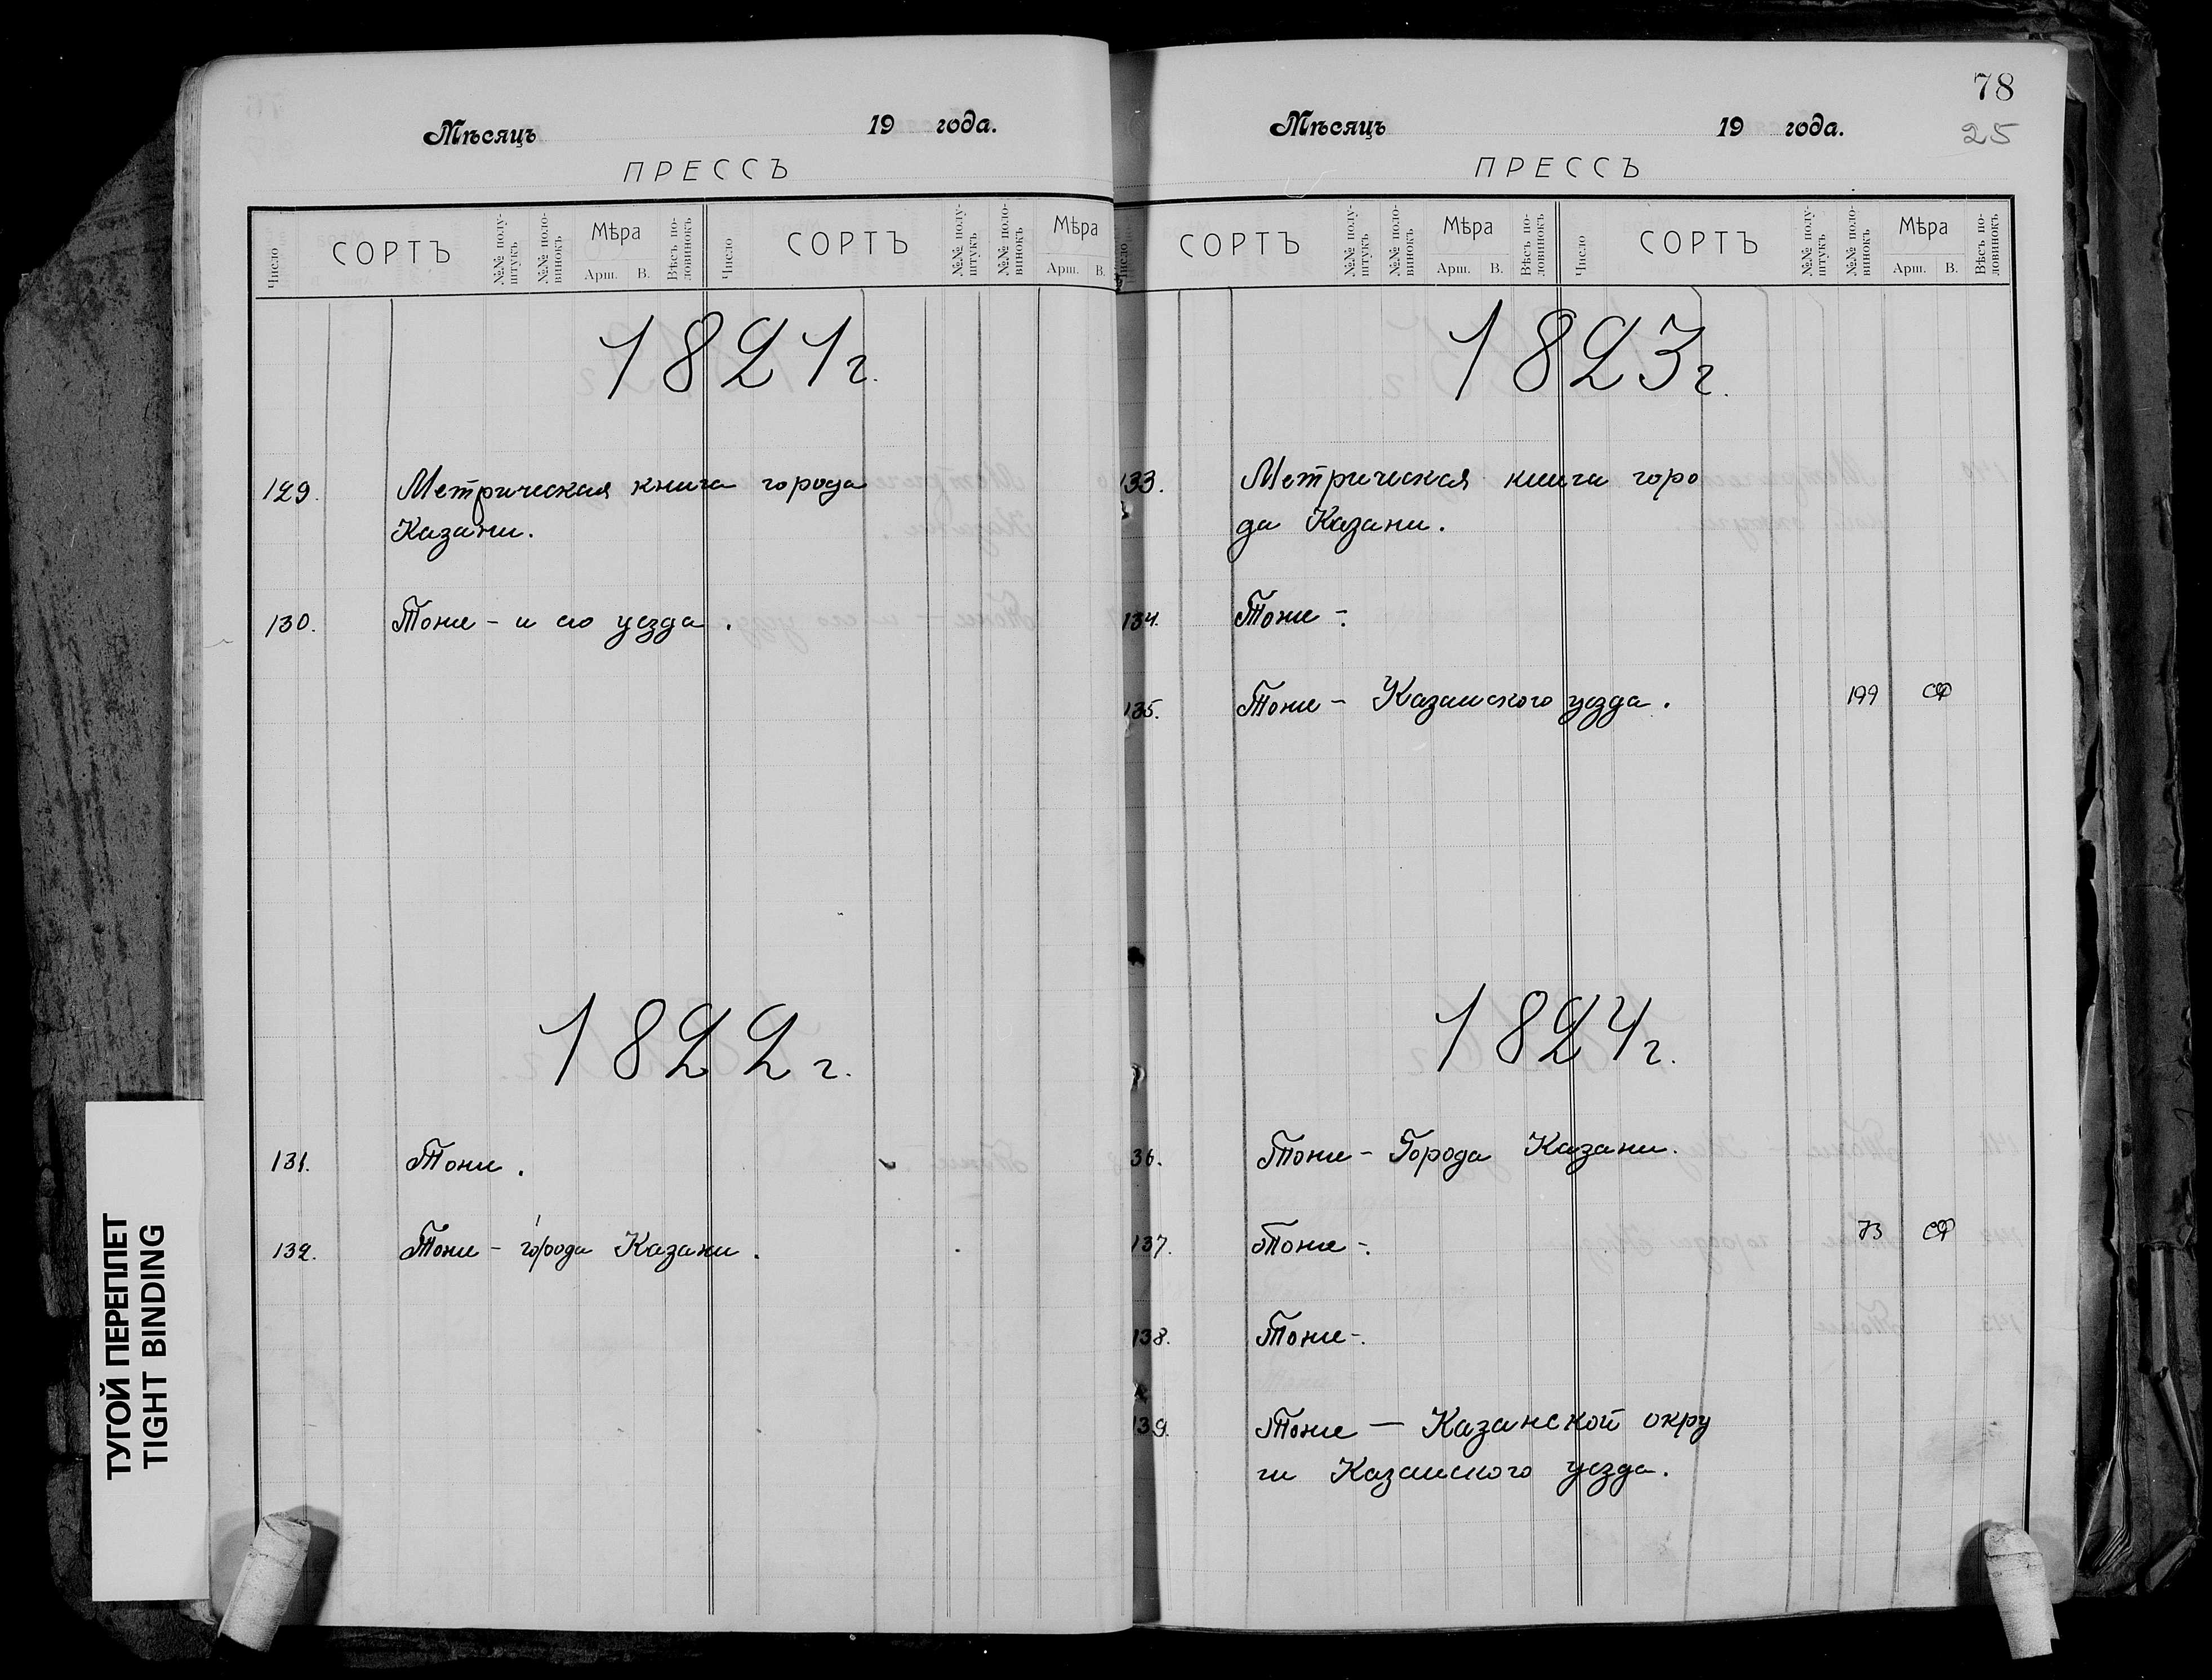 Мѣсяцъ 19 года.
ПРЕССЪ
Число СОРТЪ №№ полу-штукъ №№ поло-винокъ Мѣра Арш. В. Вѣсъ по-ловинокъ Число СОРТЪ №№ полу-штукъ №№ поло-винокъ Мѣра Арш. В.
1821г.
129. Метрическая книга города
Казани.
130. Тоже - и его уезда.
1822г.
131. Тоже.
132. Тоже - города Казани.
78
25
Мѣсяцъ 19 года.
ПРЕССЪ
Число СОРТЪ №№ полу-штукъ №№ поло-винокъ Мѣра Арш. В. Вѣсъ по-ловинокъ Число СОРТЪ №№ полу-штукъ №№ поло-винокъ Мѣра Арш. В. Вѣсъ по-ловинокъ
1823г.
133. Метрическая книга горо
да Казани.
134. Тоже -.
135. Тоже - Казанского уезда. 199 СФ
1824г.
36. Тоже - Города Казани.
137. Тоже -. 73 СФ
138. Тоже -.
139. Тоже — Казанской окру
ги Казанского уезда.
ТУГОЙ ПЕРЕПЛЕТ
TIGHT BINDING